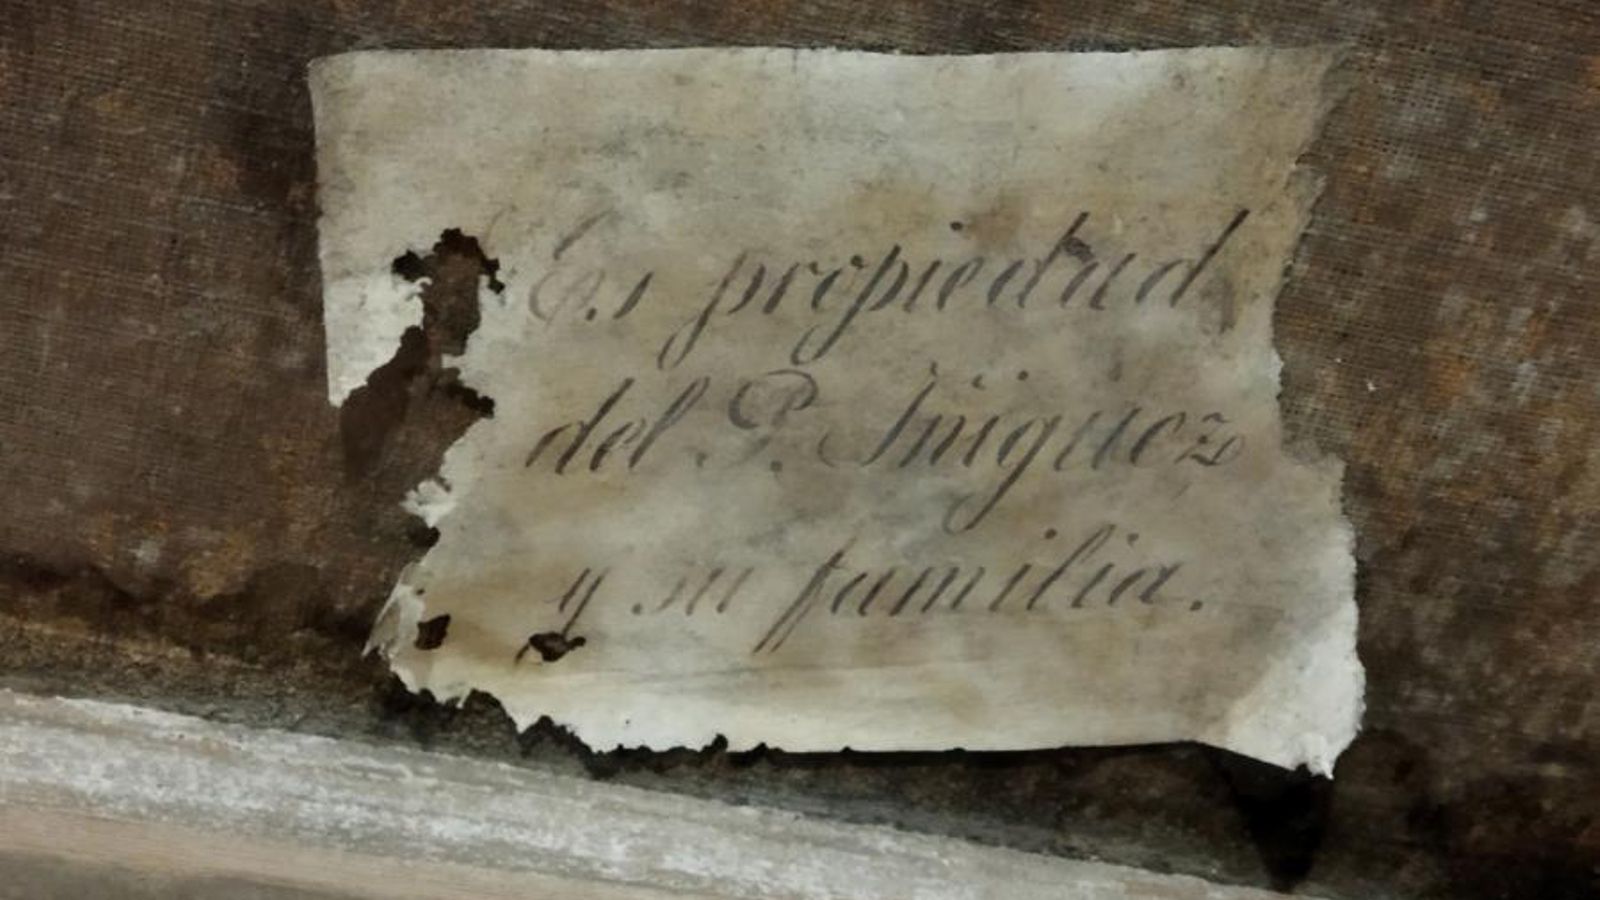 Es propiedad
del P. Iñiguez
y su familia.